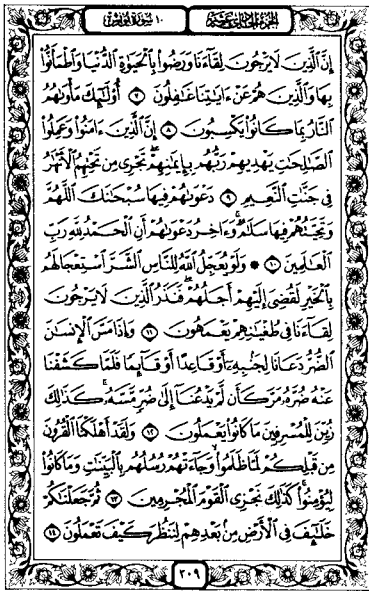 الجزء الحادي عشر ١٠ سورة يونس
إِنَّ ٱلَّذِينَ لَا يَرْجُونَ لِقَآءَنَا وَرَضُوا۟ بِٱلْحَيَوٰةِ ٱلدُّنْيَا وَٱطْمَأَنُّوا۟
بِهَا وَٱلَّذِينَ هُمْ عَنْ ءَايَٰتِنَا غَٰفِلُونَ ٧ أُو۟لَٰٓئِكَ مَأْوَىٰهُمُ
ٱلنَّارُ بِمَا كَانُوا۟ يَكْسِبُونَ ٨ إِنَّ ٱلَّذِينَ ءَامَنُوا۟ وَعَمِلُوا۟
ٱلصَّٰلِحَٰتِ يَهْدِيهِمْ رَبُّهُم بِإِيمَٰنِهِمْ ۖ تَجْرِى مِن تَحْتِهِمُ ٱلْأَنْهَٰرُ
فِى جَنَّٰتِ ٱلنَّعِيمِ ٩ دَعْوَىٰهُمْ فِيهَا سُبْحَٰنَكَ ٱللَّهُمَّ
وَتَحِيَّتُهُمْ فِيهَا سَلَٰمٌ ۚ وَءَاخِرُ دَعْوَىٰهُمْ أَنِ ٱلْحَمْدُ لِلَّهِ رَبِّ
ٱلْعَٰلَمِينَ ١٠ ۞ وَلَوْ يُعَجِّلُ ٱللَّهُ لِلنَّاسِ ٱلشَّرَّ ٱسْتِعْجَالَهُم
بِٱلْخَيْرِ لَقُضِىَ إِلَيْهِمْ أَجَلُهُمْ ۖ فَنَذَرُ ٱلَّذِينَ لَا يَرْجُونَ
لِقَآءَنَا فِى طُغْيَٰنِهِمْ يَعْمَهُونَ ١١ وَإِذَا مَسَّ ٱلْإِنسَٰنَ
ٱلضُّرُّ دَعَانَا لِجَنۢبِهِۦٓ أَوْ قَاعِدًا أَوْ قَآئِمًا فَلَمَّا كَشَفْنَا
عَنْهُ ضُرَّهُۥ مَرَّ كَأَن لَّمْ يَدْعُنَآ إِلَىٰ ضُرٍّ مَّسَّهُۥ ۚ كَذَٰلِكَ
زُيِّنَ لِلْمُسْرِفِينَ مَا كَانُوا۟ يَعْمَلُونَ ١٢ وَلَقَدْ أَهْلَكْنَا ٱلْقُرُونَ
مِن قَبْلِكُمْ لَمَّا ظَلَمُوا۟ ۙ وَجَآءَتْهُمْ رُسُلُهُم بِٱلْبَيِّنَٰتِ وَمَا كَانُوا۟
لِيُؤْمِنُوا۟ ۚ كَذَٰلِكَ نَجْزِى ٱلْقَوْمَ ٱلْمُجْرِمِينَ ١٣ ثُمَّ جَعَلْنَٰكُمْ
خَلَٰٓئِفَ فِى ٱلْأَرْضِ مِنۢ بَعْدِهِمْ لِنَنظُرَ كَيْفَ تَعْمَلُونَ ١٤
٢٠٩